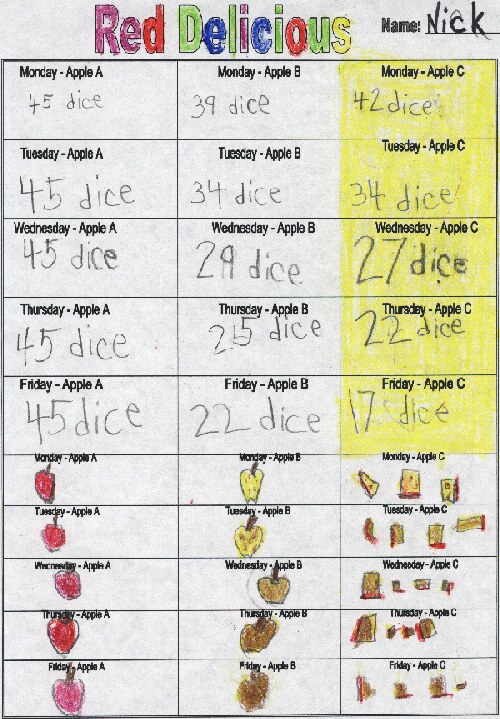 Red Delicious
Name: Nick
Monday - Apple A
Monday - Apple B
Monday - Apple C
45 dice
39 dice
42 dice
Tuesday - Apple A
Tuesday - Apple B
Tuesday - Apple C
45 dice
34 dice
34 dice
Wednesday - Apple A
Wednesday - Apple B
Wednesday - Apple C
45 dice
29 dice
27 dice
Thursday - Apple A
Thursday - Apple B
Thursday - Apple C
45 dice
25 dice
22 dice
Friday - Apple A
Friday - Apple B
Friday - Apple C
45 dice
22 dice
17 dice
Monday - Apple A
Monday - Apple B
Monday - Apple C
Tuesday - Apple A
Tuesday - Apple B
Tuesday - Apple C
Wednesday - Apple A
Wednesday - Apple B
Wednesday - Apple C
Thursday - Apple A
Thursday - Apple B
Thursday - Apple C
Friday - Apple A
Friday - Apple B
Friday - Apple C